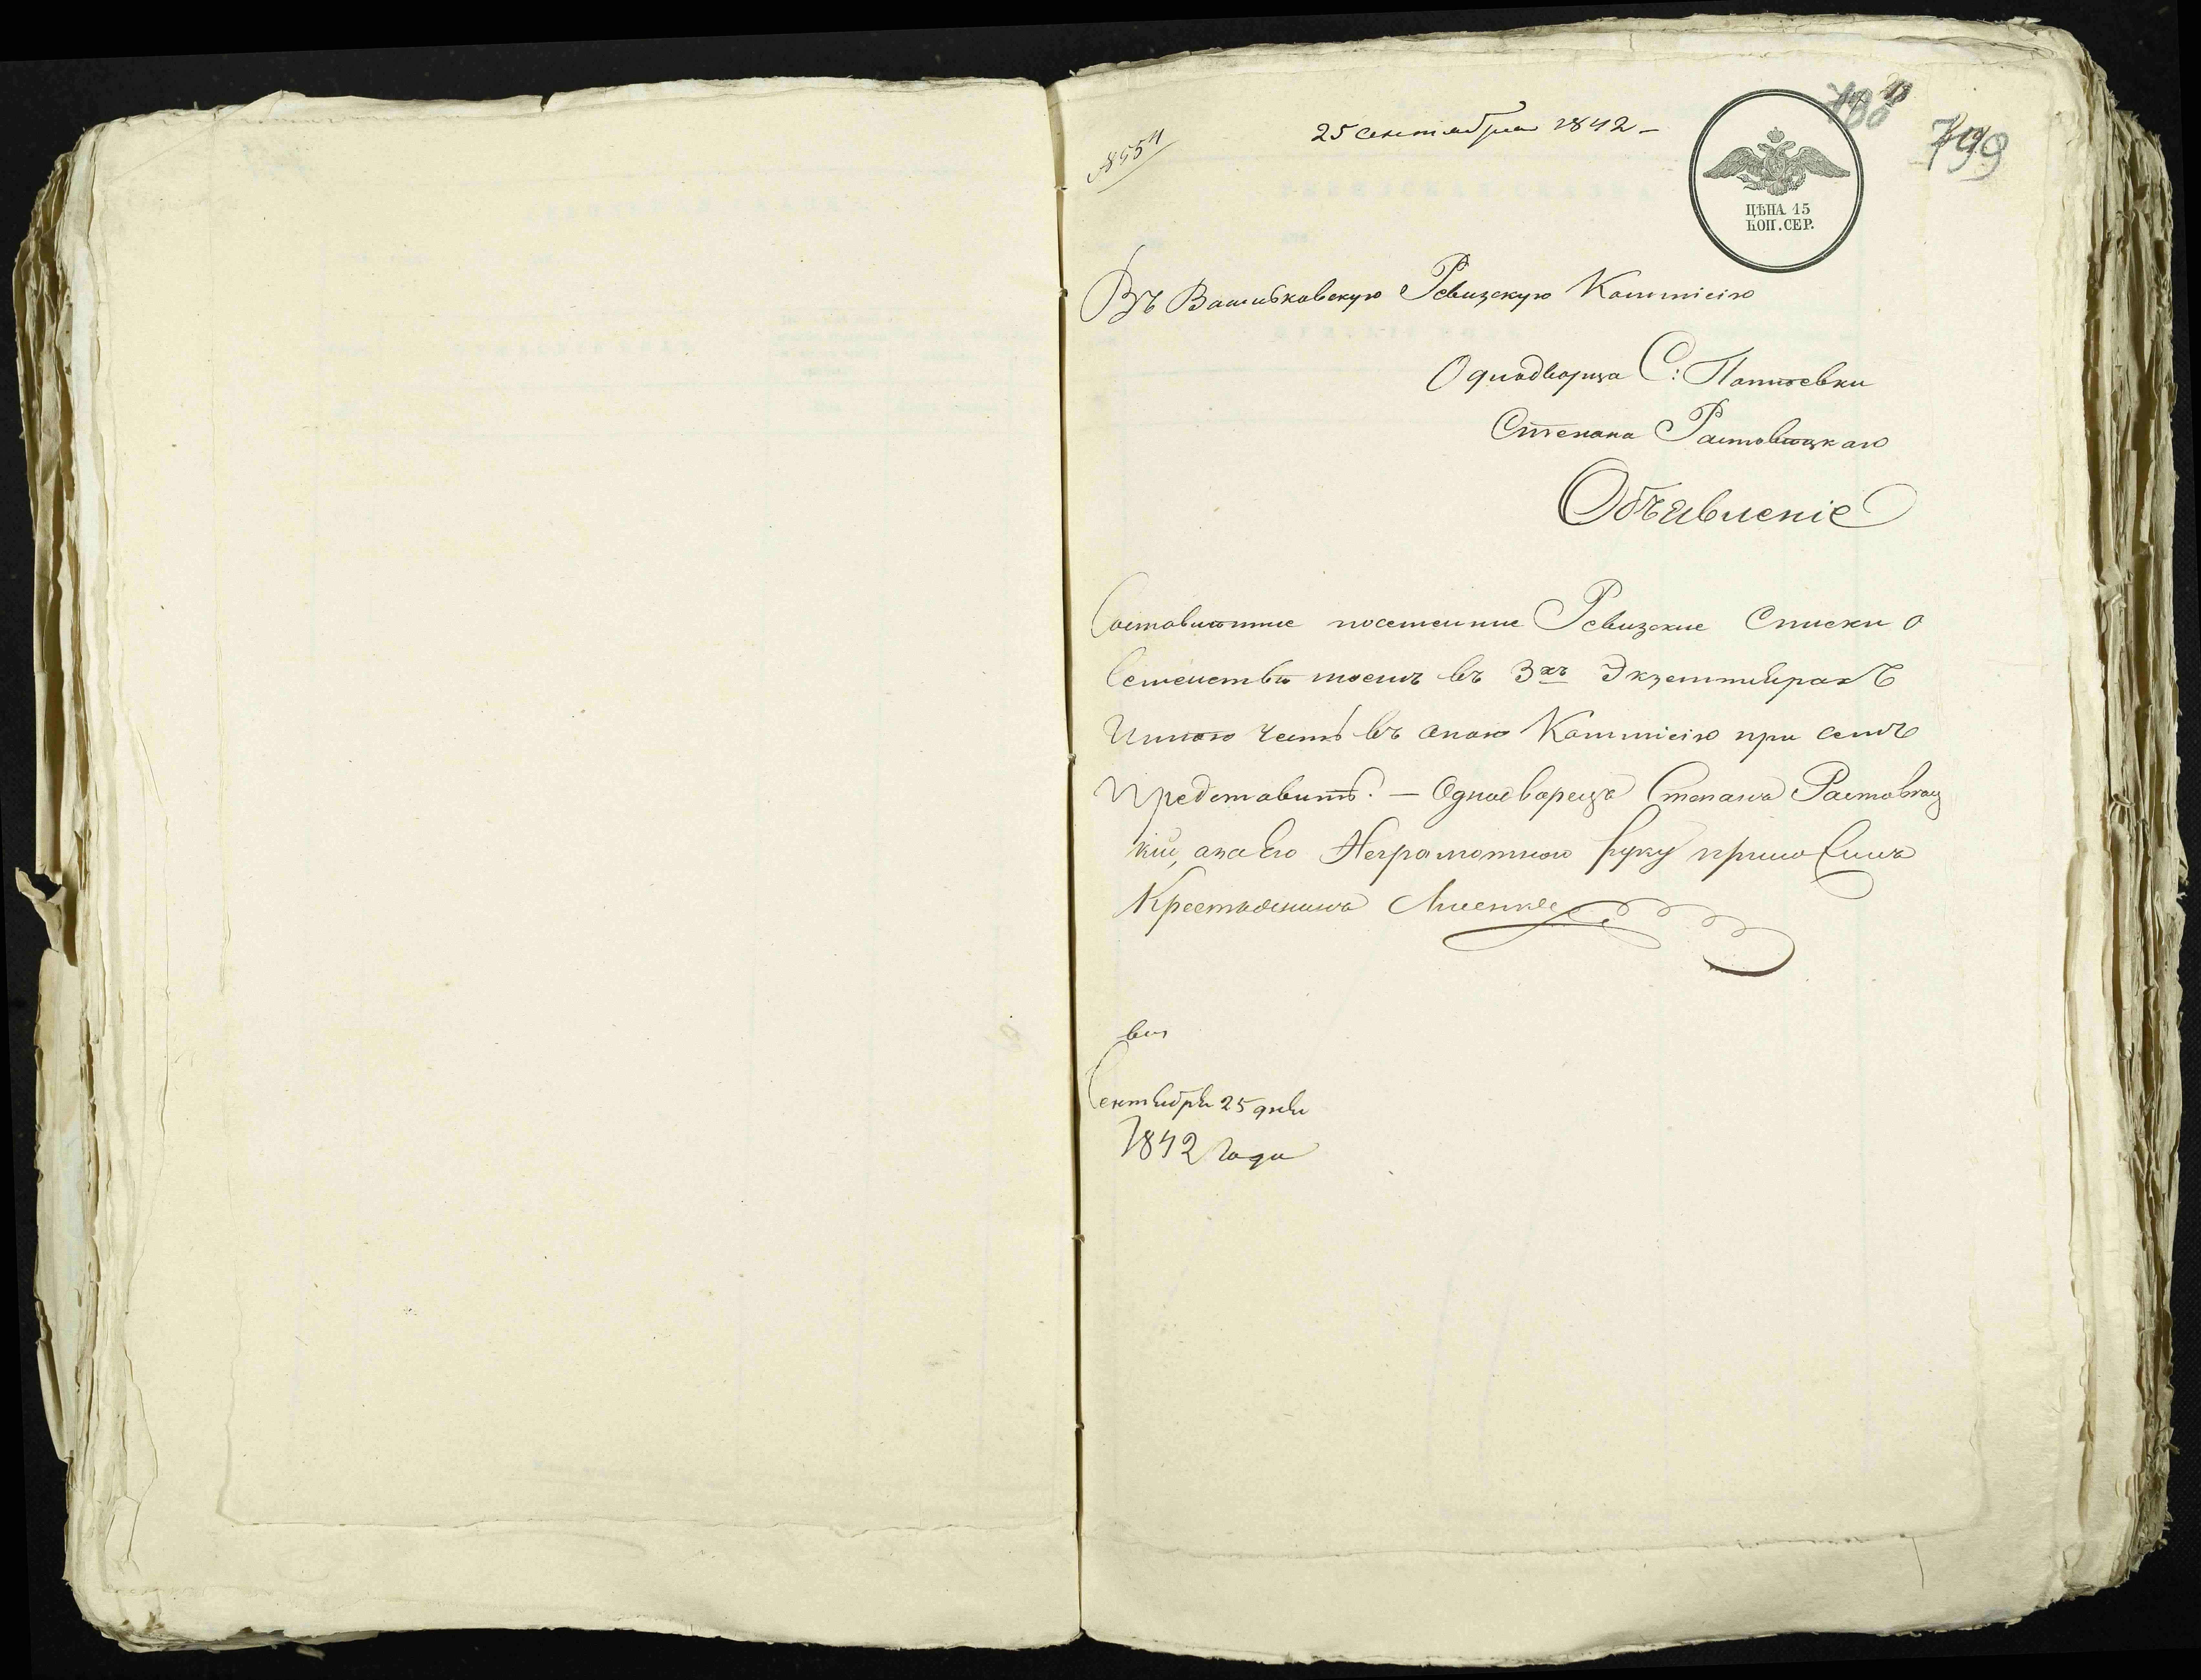 25 сентября 1842 –
799
ЦѢНА 15
КОП. СЕР.
Въ Васильковскую Ревизскую Коммісію
Однодворца С:
Степана Ростовецкаго
Объявленіе
Составленные посемейные Ревизские Списки о
Семействѣ моемъ въ 3хъ Экземплярахъ
Имѣю честь въ оною Коммісію при семъ
Представить. — Однодворецъ Степанъ Ростовец
кій, а за Его Неграмотного руку приложилъ
Крестьянинъ
Сентября 25 дня
1842 Года